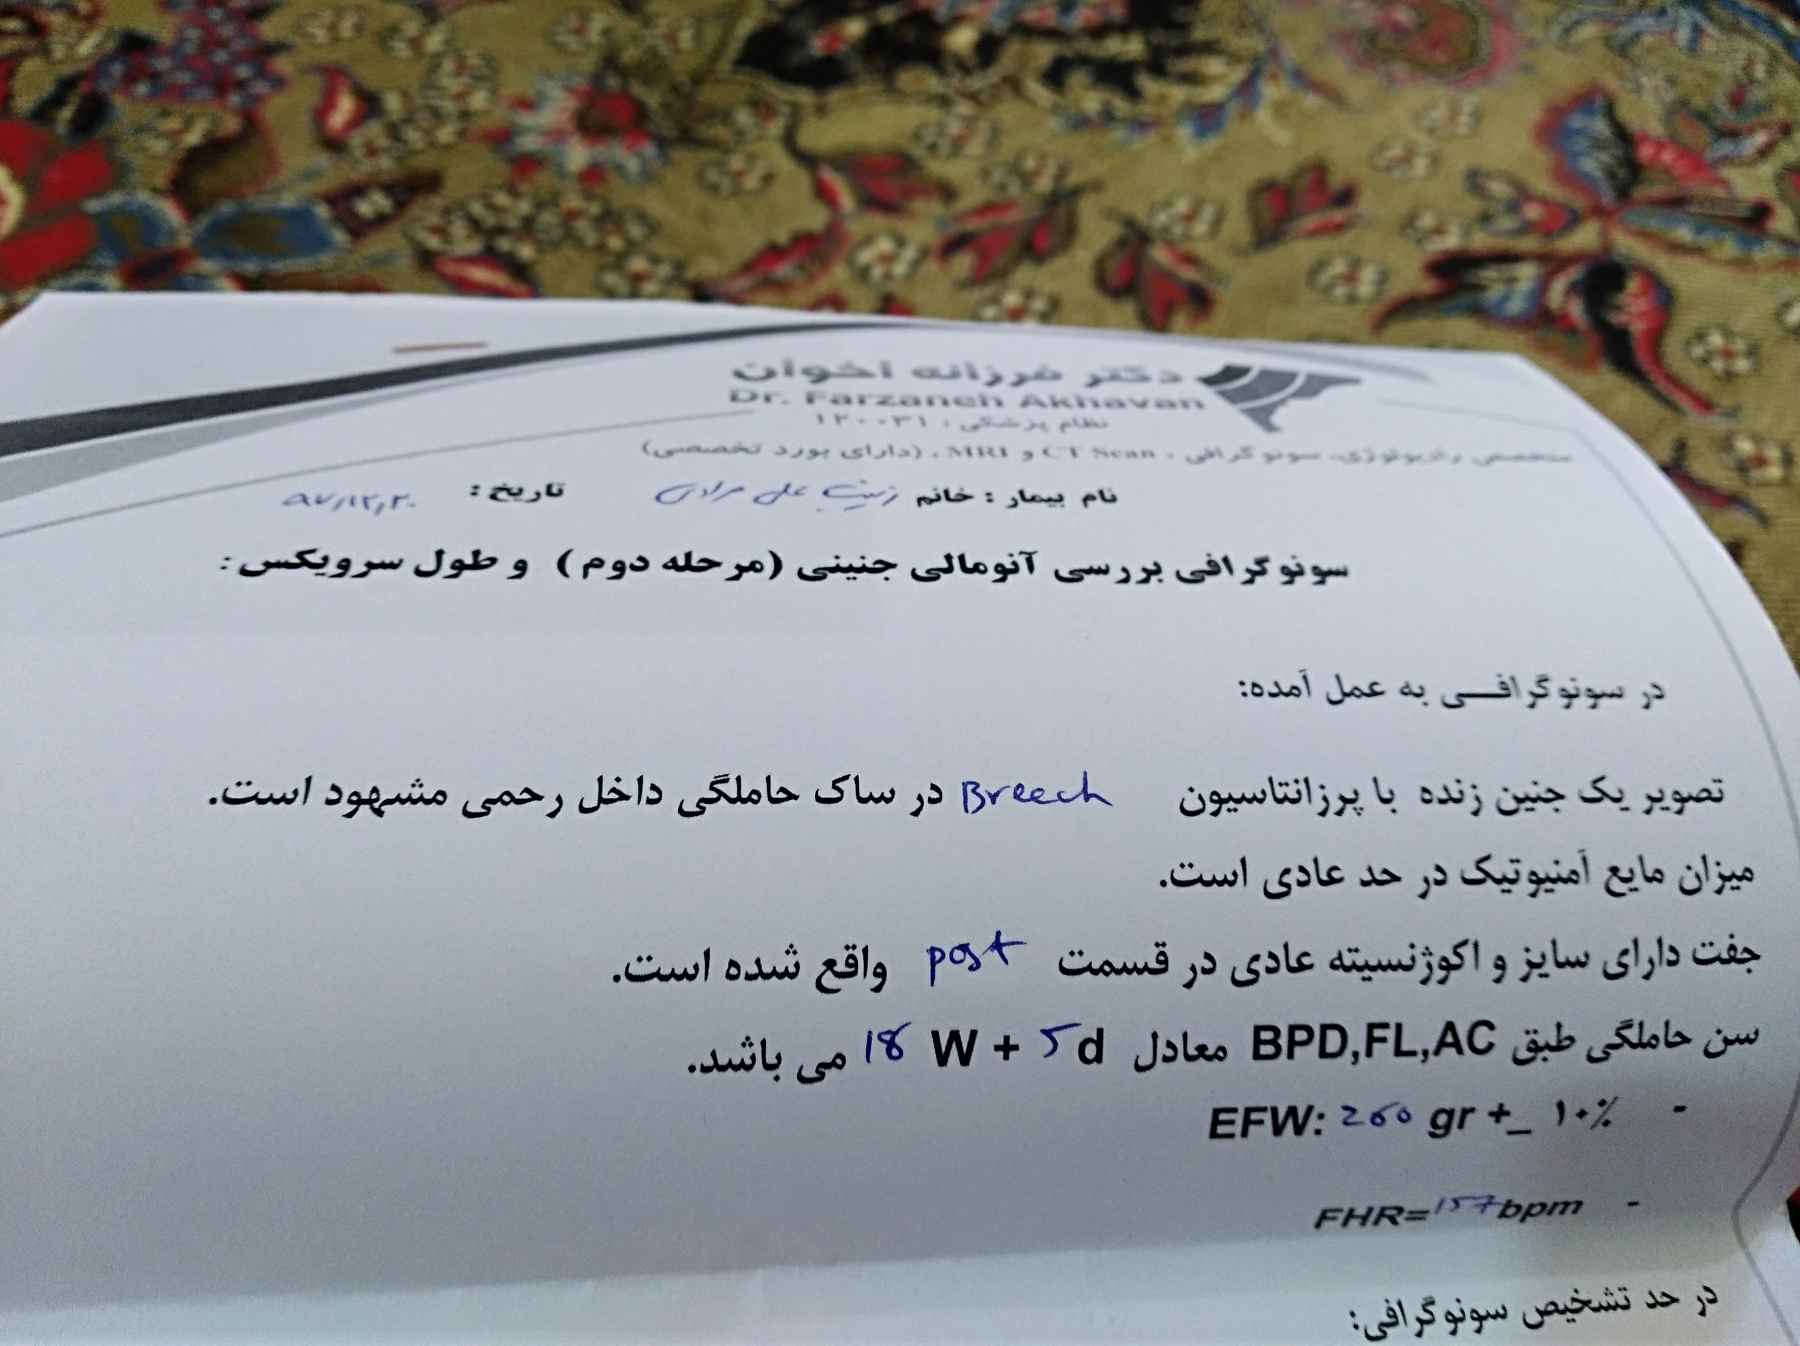 دکتر فرزانه اخوان
Dr. Farzaneh Akhavan
نظام پزشکی : ۱۲۰۰۳۱
متخصص رادیولوژی، سونوگرافی ، CT Scan و MRI . (دارای بورد تخصصی)
نام بیمار : خانم زینب علی مرادی تاریخ : ۹۷,۱۲,۲۰
سونوگرافی بررسی آنومالی جنینی (مرحله دوم) و طول سرویکس :
در سونوگرافی به عمل آمده:
تصویر یک جنین زنده با پرزانتاسیون Breech در ساک حاملگی داخل رحمی مشهود است.
میزان مایع آمنیوتیک در حد عادی است.
جفت دارای سایز و اکوژنسیته عادی در قسمت post واقع شده است.
سن حاملگی طبق BPD,FL,AC معادل 18 W + 5 d می باشد.
- EFW: 260 gr +_ ۱۰٪
- FHR=157bpm
در حد تشخیص سونوگرافی: